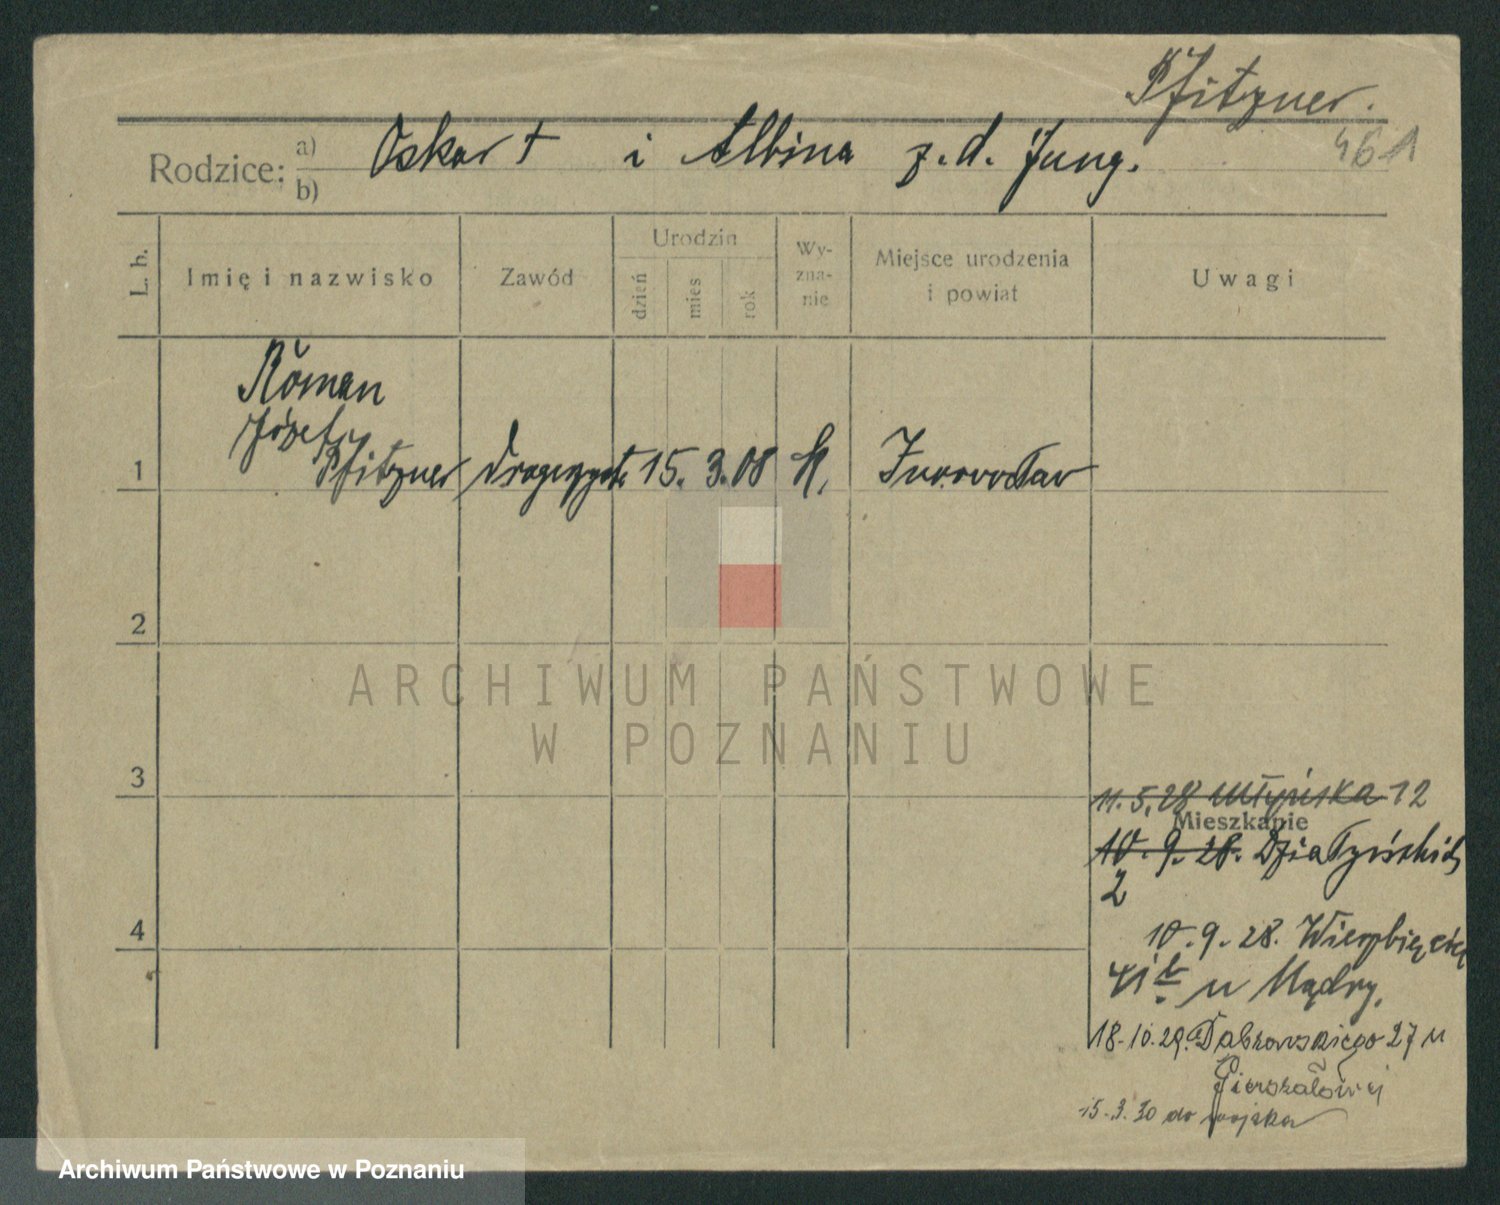 Pfitzner.
461
Rodzice: a) b) Oskar † i Albina z. d. Jung.
L. b. Imię i nazwisko Zawód Urodzin dzień mies rok Wy-zna-nie Miejsce urodzenia i powiat Uwagi
Roman
Józef
1 Pfitzner drogerzysta 15. 3. 08 kt. Inowrocław
2
ARCHIWUM PAŃSTWOWE
W POZNANIU
3
11. 5. 28 Młyńska 12
Mieszkanie
10. 9. 28. Działyńskich
2
4
10. 9. 28. Wierzbięcice
u Mądry.
18. 10. 29. Dąbrowskiego 27 u
15. 3. 30 do wojska
Archiwum Państwowe w Poznaniu